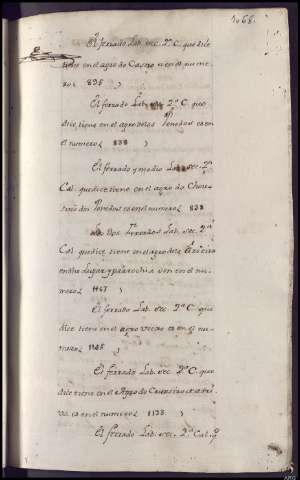 1068.
El ferrado Lab. sec. 2ª C. que dice
tiene en el agro de es en el nume-
ro ( 838 )
El ferrado Lab. sec. 2ª C. que
dice, tiene en el agro de los Penedos es en
el numero ( 838 )
El ferrado y medio Lab. sec. 2ª
Cal. que dice tiene en el agro de
Penedos es en el numero ( 838
Los dos ferrados Lab. sec. 2ª
Cal. que dice, tiene en el agro de la
en dho Lugar y parrochia son en el nu-
mero ( 1147 )
El ferrado Lab. sec. 2ª C. que
dice tiene en el agro es en el nu-
mero ( 1148 )
El ferrado Lab. sec. 2ª C. que
dice tiene en el Agro de
es en el numero ( 1138 )
El ferrado Lab. sec. 2ª Cal. q